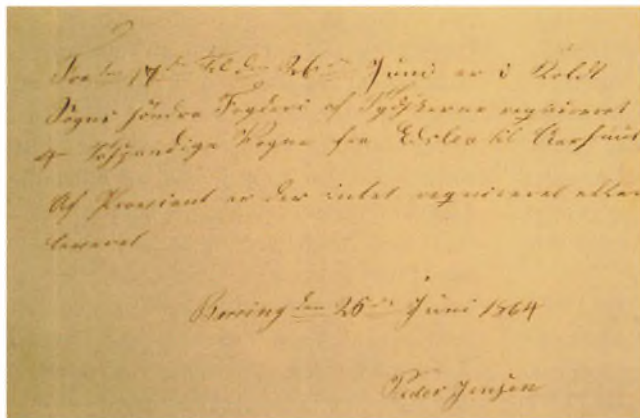 Fra den 17de til den 26de Juni er i Kolt
Sogns söndre Fogderi af Tydskerne requireret
4 tospændige Vogne fra Edslev til Aarhuus
Af Proviant er der intet requireret eller
leveret
den 26de Juni 1864
Peder Jensen